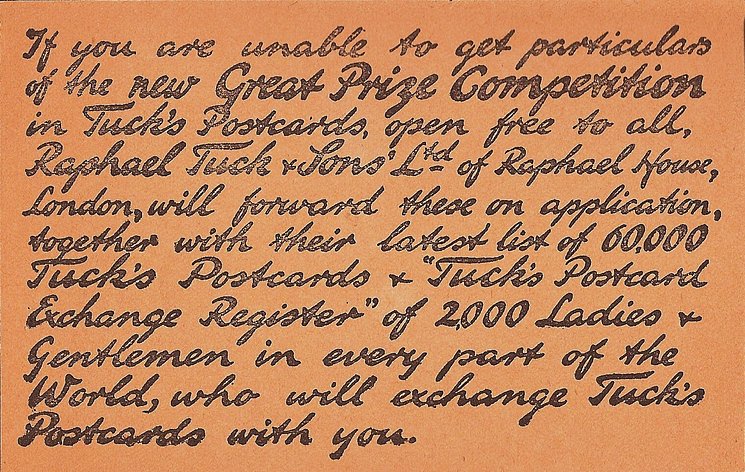 If you are unable to get particulars
of the new Great Prize Competition
in Tuck's Postcards, open free to all,
Raphael Tuck & Sons' Ltd of Raphael House,
London, will forward these on application,
together with their latest list of 60,000
Tuck's Postcards & "Tuck's Postcard
Exchange Register" of 2,000 Ladies &
Gentlemen in every part of the
World, who will exchange Tuck's
Postcards with you.